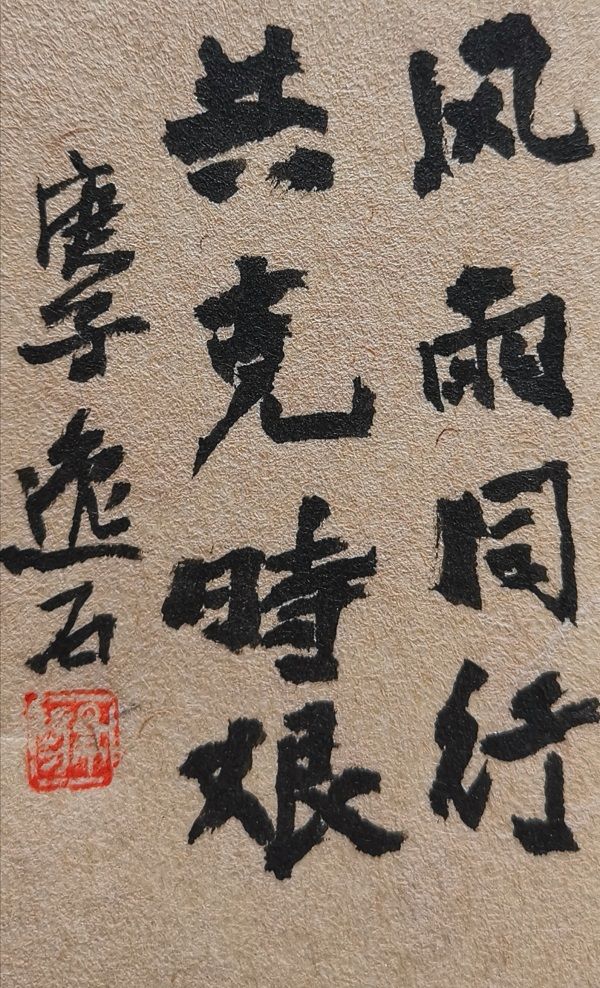 风雨同行
共克時艰
庚子逸石